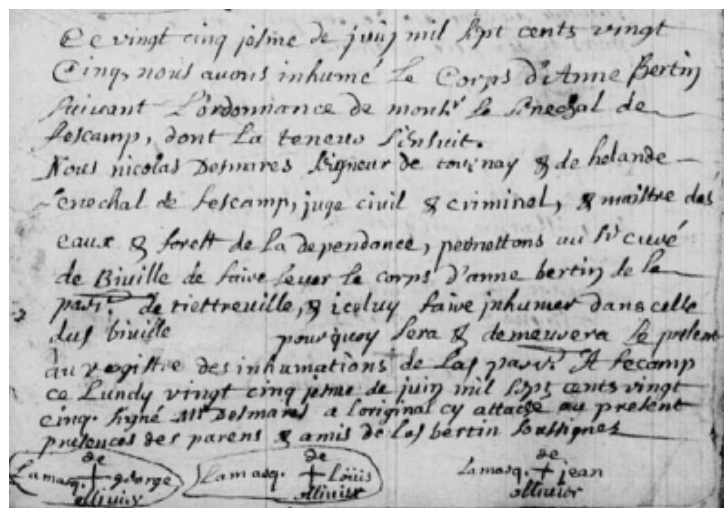 Ce vingt cinq jesme de juin mil sept cents vingt
Cinq, nous avons inhumé le Corps d'Anne Bertin
suivant L'ordonnance de monsr le senechal de
fescamp, dont la teneur s'ensuit.
Nous nicolas Desmares seigneur de tournay & de helande
senechal de fescamp, juge civil & criminel, & maistre des
eaux & forest de la dependance, permettons au sr curé
de Biville de faire lever le corps d'anne bertin de la
parr. de tiettreville, & iceluy faire inhumer dans celle
dud biville pourquoy sera & demeurera le present
au registre des inhumations de lad parr. A fecamp
ce Lundy vingt cinq jesme de juin mil sept cents vingt
cinq. signé Mr Desmares a l'original cy attaché au present
presences des parens & amis de lad bertin soussignez
La marq. de + george ollivier La marq. de + Loüis ollivier La marq. de + jean ollivier